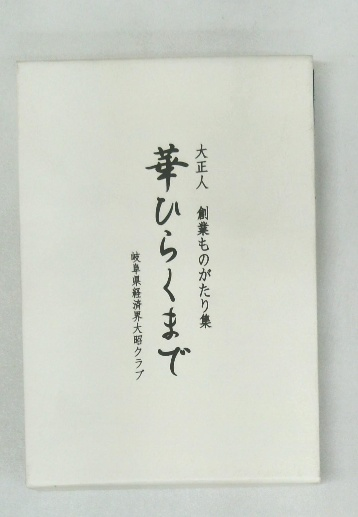 大正人 創業ものがたり集
華ひらくまで
岐阜県経済界大昭クラブ